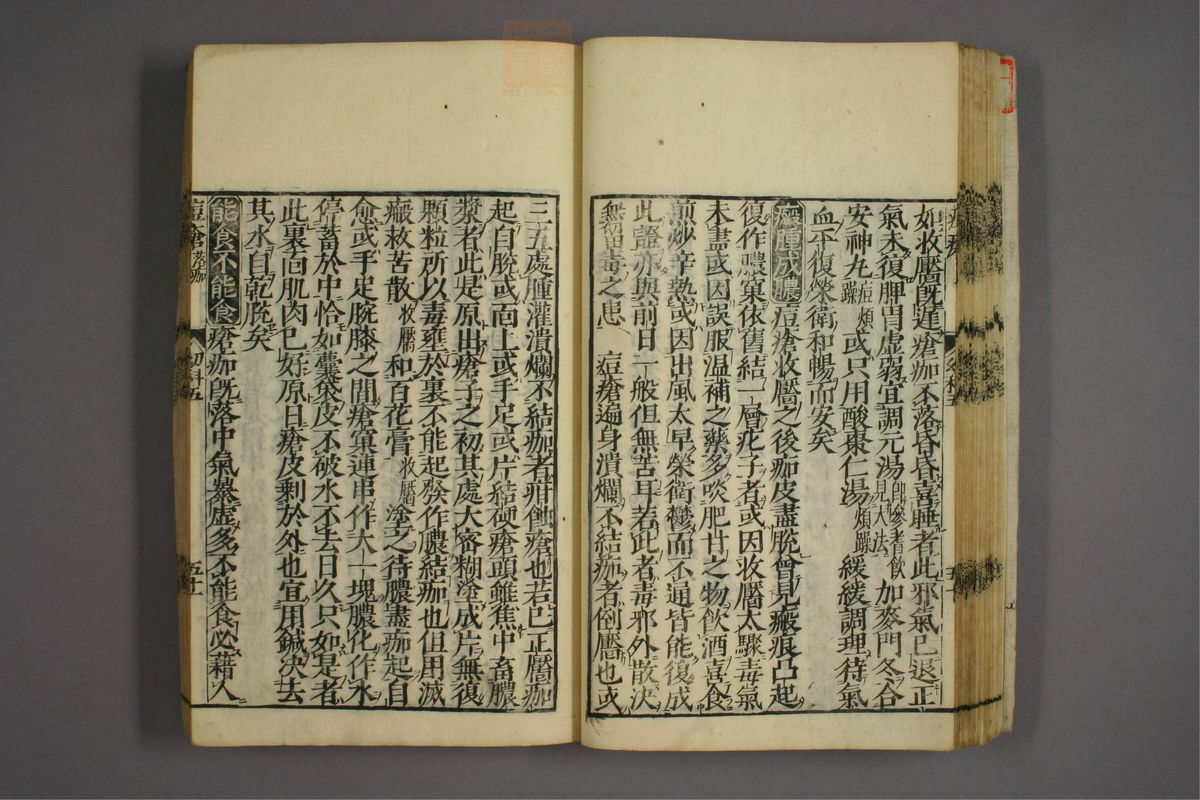 如收靨既遲瘡痂不落昏昏喜睡者此邪氣已退正
氣未復脾胃虛弱宜調元湯即參耆飲見大法加麥門冬合
安神丸痘煩躁或只用酸棗仁湯煩躁緩緩調理待氣
血平復榮衛和暢而安矣
瘢腫成膿痘瘡收靨之後痂皮盡脫曾見瘢痕凸起
復作膿窠依舊結一層疕子者或因收靨太驟毒氣
未盡或因誤服溫補之藥多啖肥甘之物飲酒喜食
煎炒辛熱或因出風太早榮衛欝而不通皆能復成
此證亦與前日一般但無苦耳若此者毒邪外散決
無留毒之患 痘瘡遍身潰爛不結痂者倒靨也或
三五處腫灌潰爛不結痂者疳蝕瘡也若已正靨痂
起自脫或面上或手足或片結硬瘡頭雖焦中畜膿
漿者此是原出瘡子之初其處大密糊塗成片無復
顆粒所以毒壅於裏不能起發作膿結痂也但用滅
瘢救苦散收靨和百花膏收靨塗之待膿盡痂起自
愈或手足腕膝之間瘡窠連串作大一塊膿化作水
停畜於中恰如囊袋皮不破水不去日久只如是者
此裏面肌肉已好原日瘡皮剩於外也宜用鍼決去
其水自乾脫矣
能食不能食瘡痂既落中氣暴虛多不能食必藉人
痘瘡落痂 五十一